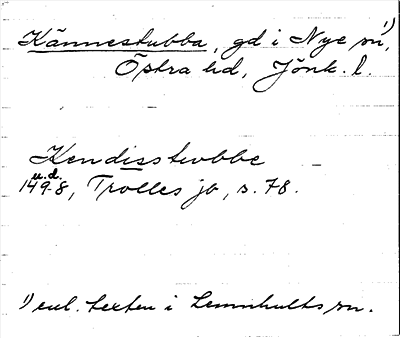 Kännestubba, gd i Nye sn¹),
Östra hd, Jönk. l.
Kendisstubbe
u.d.
1498, Trolles jb, s. 78.
¹) enl. texten i Lemnhults sn.